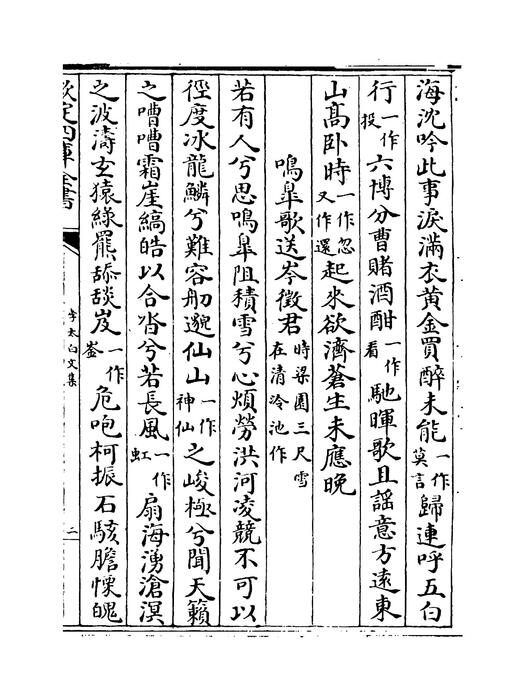 海沈吟此事淚滿衣黄金買醉未能一作莫言歸連呼五白
行一作投六博分曹賭酒酣一作看馳暉歌且謡意方逺東
山髙卧時一作忽又作還起来欲濟蒼生未應晚
鳴臯歌送岑徴君時梁園三尺雪在清泠池作
若有人兮思鳴臯阻積雪兮心煩勞洪河凌競不可以
徑度冰龍鱗兮難容舠邈仙山一作神仙之峻極兮聞天籟
之嘈嘈霜崖縞皓以合沓兮若長風一作虹扇海湧滄溟
之波濤玄猿緑羆舔舕岌一作崟危咆柯振石駭膽慄魄
欽定四庫全書
李太白文集
二